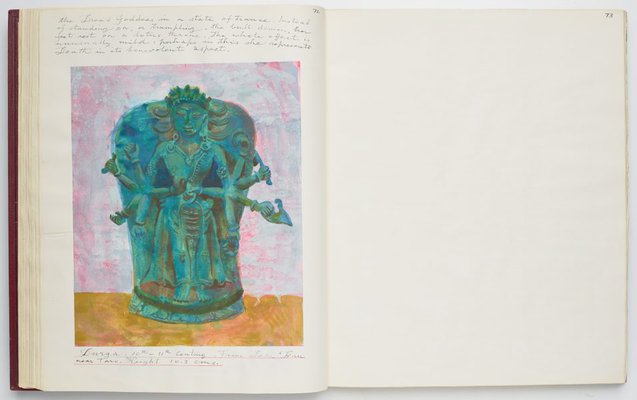 72
the Siva's Goddess in a state of Trance. Instead
of standing on, or trampling, the bull demon, her
feet rest on a lotus throne. The whole effect is
unusually mild: perhaps in this she represents
Death in its benevolent aspect.
Durga. 10th - 11th Century. From
near Height 10.3 cms.
73